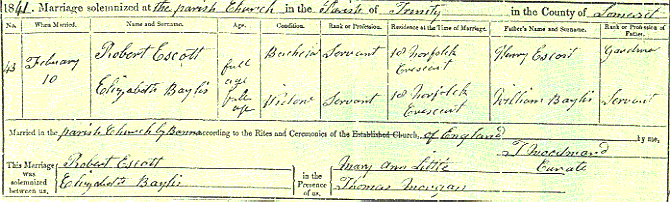 1841. Marriage solemnized at the parish Church in the Parish of Trinity in the County of Somerset
No. When Married. Name and Surname. Age. Condition. Rank or Profession. Residence at the Time of Marriage. Father's Name and Surname. Rank or Profession of Father.
43 February 10 Robert Escott full age Bachelor Servant 18 Norfolk Crescent Henry Escott Gardener
Elizabeth Baylis full age Widow Servant 18 Norfolk Crescent William Baylis Servant
Married in the parish Church by Banns according to the Rites and Ceremonies of the Established Church, of England by me,
This Marriage was solemnized between us, Robert Escott Elizabeth Baylis in the Presence of us, Mary Ann Little Thomas Morgan Curate